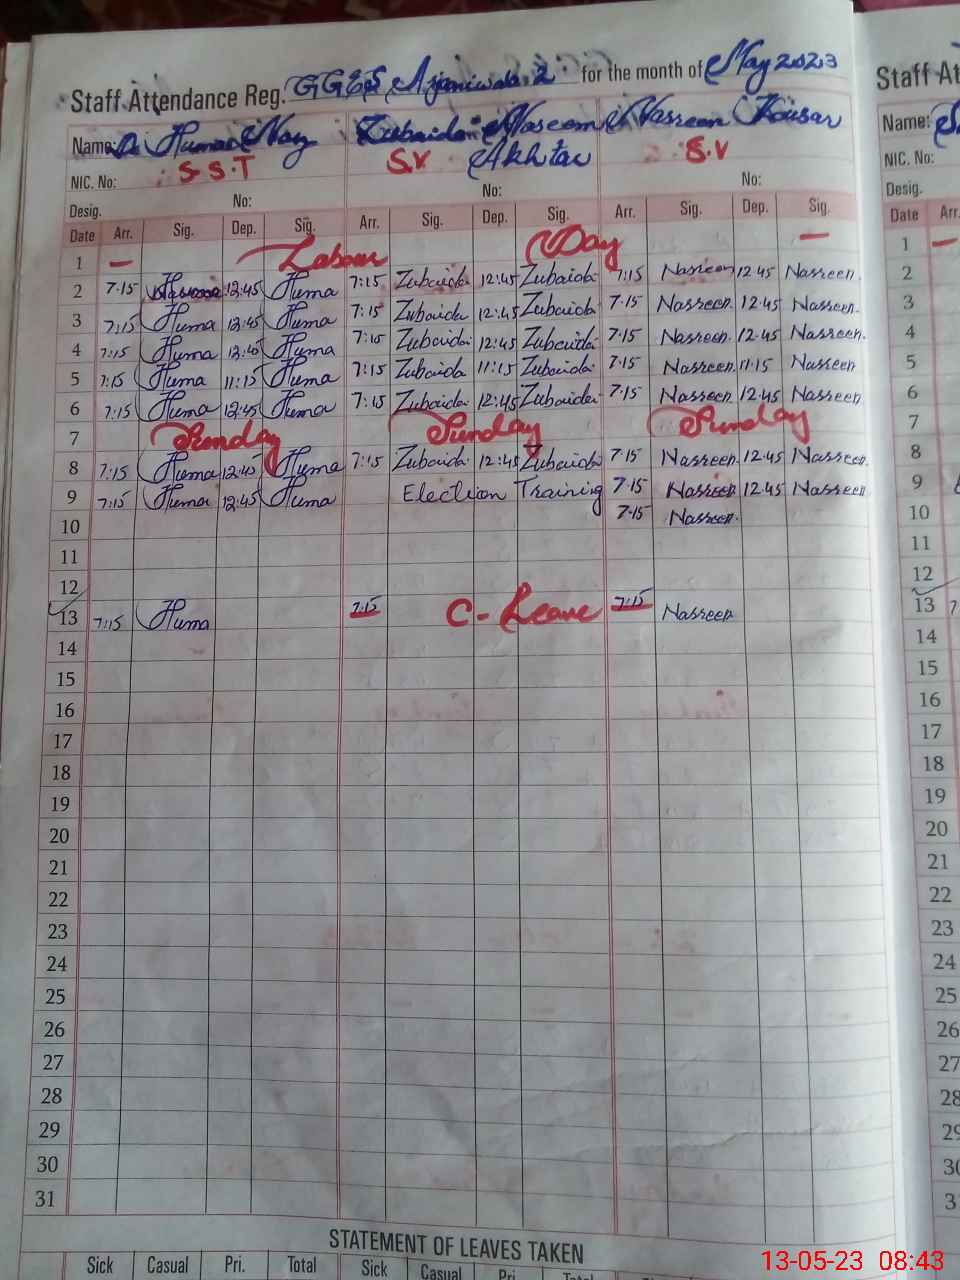 Staff Attendance Reg. GGES Ajaniwala 2 for the month of May 2023
Staff At
Name: Huma Naz Zubaida Naseem Nasreen Kousar
Name:
S S.T S.V Akhtar S.V
NIC. No: No: No:
NIC. No:
Desig. No:
Desig.
Date Arr. Sig. Dep. Sig. Arr. Sig. Dep. Sig. Arr. Sig. Dep. Sig.
Date Arr.
1 — Labour Day —
1 —
2 7:15 12:45 Huma 7:15 Zubaida 12:45 Zubaida 7:15 Nasreen 12:45 Nasreen
2
3 7:15 Huma 12:45 Huma 7:15 Zubaida 12:45 Zubaida 7:15 Nasreen 12:45 Nasreen
3
4 7:15 Huma 12:45 Huma 7:15 Zubaida 12:45 Zubaida 7:15 Nasreen 12:45 Nasreen
4
5 7:15 Huma 11:15 Huma 7:15 Zubaida 11:15 Zubaida 7:15 Nasreen 11:15 Nasreen
5
6 7:15 Huma 12:45 Huma 7:15 Zubaida 12:45 Zubaida 7:15 Nasreen 12:45 Nasreen
6
7 Sunday Sunday Sunday
7
8 7:15 Huma 12:45 Huma 7:15 Zubaida 12:45 Zubaida 7:15 Nasreen 12:45 Nasreen
8
9 7:15 Huma 12:45 Huma Election Training 7:15 Nasreen 12:45 Nasreen
9
10 7:15 Nasreen
10
11
11
12
12
13 7:15 Huma 7:15 C-Leave 7:15 Nasreen
13 7
14
14
15
15
16
16
17
17
18
18
19
19
20
20
21
21
22
22
23
23
24
24
25
25
26
26
27
27
28
28
29
29
30
30
31
3
STATEMENT OF LEAVES TAKEN
Sick Casual Pri. Total Sick Casual Pri. Total Sick
13-05-23 08:43